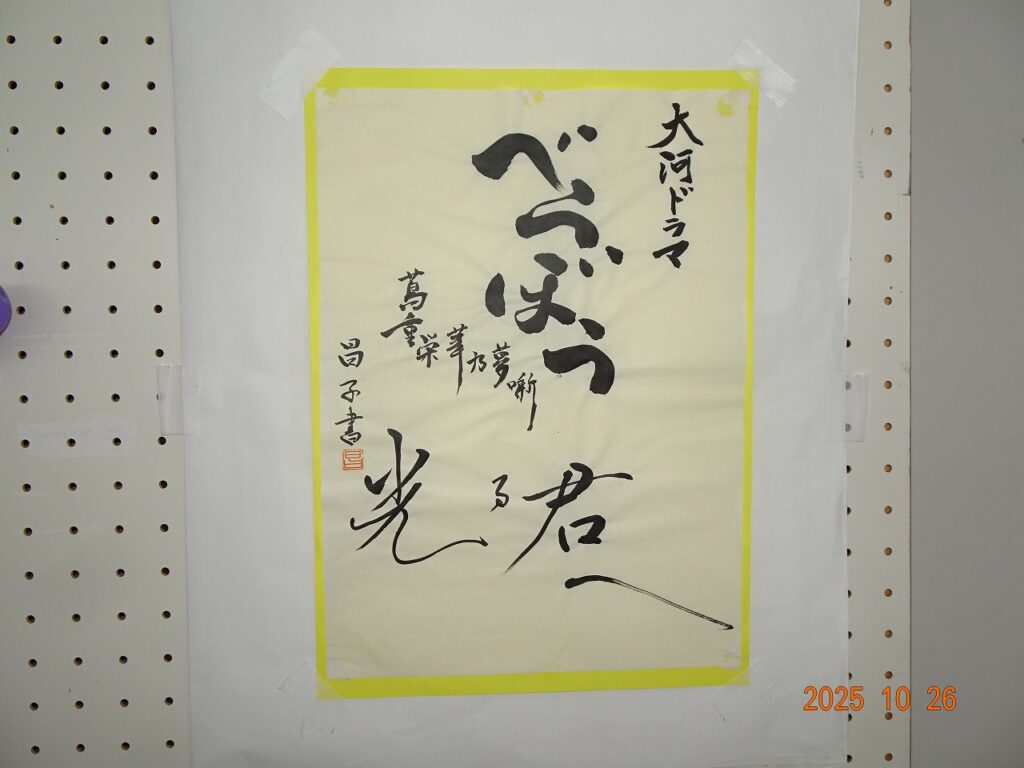 大河ドラマ
べらぼう
蔦重栄華乃夢噺
光る君へ
昌子書
2025 10 26